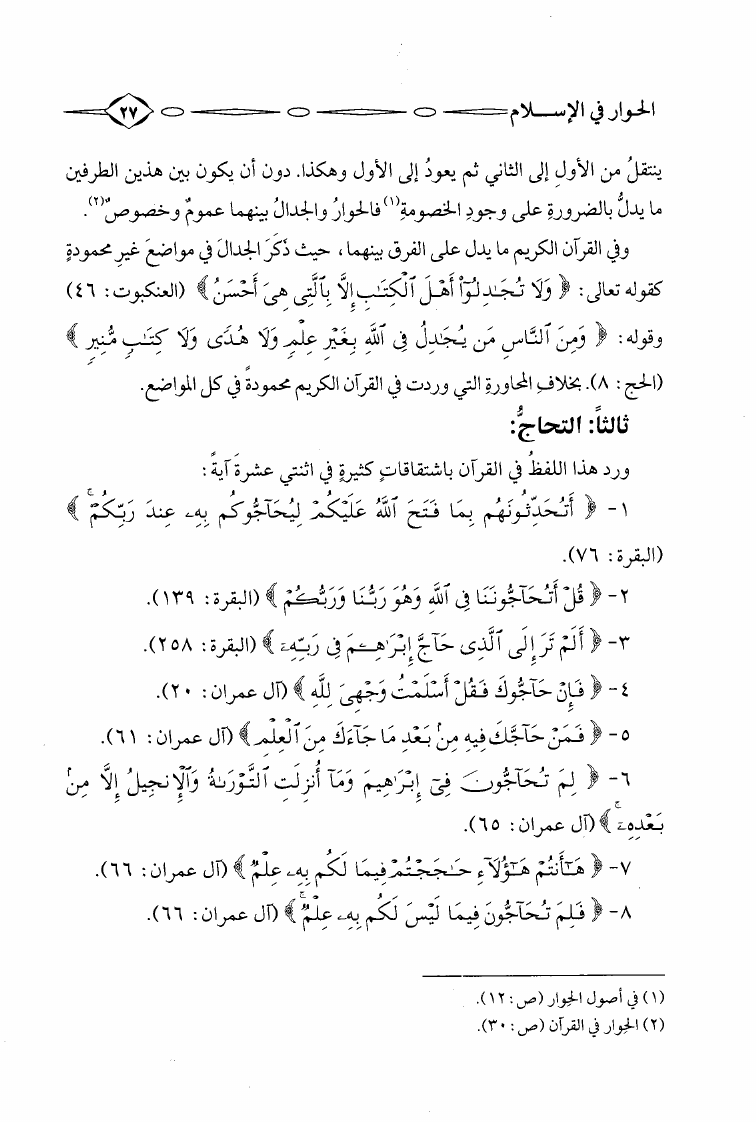 الحوار في الإسـلام ٢٧
ينتقلُ من الأولِ إلى الثاني ثم يعودُ إلى الأول وهكذا. دون أن يكون بين هذين الطرفين
ما يدلُّ بالضرورةِ على وجودِ الخصومةِ(١) فالحوارُ والجدالُ بينهما عمومٌ وخصوصٌ(٢).
وفي القرآن الكريم ما يدل على الفرق بينهما، حيث ذَكَرَ الجدالَ في مواضعَ غيرِ محمودةٍ
كقوله تعالى: ﴿ وَلَا تُجَـٰدِلُوٓا۟ أَهْلَ ٱلْكِتَـٰبِ إِلَّا بِٱلَّتِى هِىَ أَحْسَنُ ﴾ (العنكبوت: ٤٦)
وقوله: ﴿ وَمِنَ ٱلنَّاسِ مَن يُجَـٰدِلُ فِى ٱللَّهِ بِغَيْرِ عِلْمٍ وَلَا هُدًى وَلَا كِتَـٰبٍ مُّنِيرٍ ﴾
(الحج: ٨). بخلافِ المحاورةِ التي وردت في القرآن الكريم محمودةً في كل المواضع.
ثالثاً: التحاجُّ:
ورد هذا اللفظُ في القرآن باشتقاقاتٍ كثيرةٍ في اثنتي عشرةَ آيةً:
١- ﴿ أَتُحَدِّثُونَهُم بِمَا فَتَحَ ٱللَّهُ عَلَيْكُمْ لِيُحَآجُّوكُم بِهِۦ عِندَ رَبِّكُمْ ۚ ﴾
(البقرة: ٧٦).
٢- ﴿ قُلْ أَتُحَآجُّونَنَا فِى ٱللَّهِ وَهُوَ رَبُّنَا وَرَبُّكُمْ ﴾ (البقرة: ١٣٩).
٣- ﴿ أَلَمْ تَرَ إِلَى ٱلَّذِى حَآجَّ إِبْرَٰهِـۧمَ فِى رَبِّهِۦٓ ﴾ (البقرة: ٢٥٨).
٤- ﴿ فَإِنْ حَآجُّوكَ فَقُلْ أَسْلَمْتُ وَجْهِىَ لِلَّهِ ﴾ (آل عمران: ٢٠).
٥- ﴿ فَمَنْ حَآجَّكَ فِيهِ مِنۢ بَعْدِ مَا جَآءَكَ مِنَ ٱلْعِلْمِ ﴾ (آل عمران: ٦١).
٦- ﴿ لِمَ تُحَآجُّونَ فِىٓ إِبْرَٰهِيمَ وَمَآ أُنزِلَتِ ٱلتَّوْرَىٰةُ وَٱلْإِنجِيلُ إِلَّا مِنۢ
بَعْدِهِۦٓ ۚ ﴾ (آل عمران: ٦٥).
٧- ﴿ هَـٰٓأَنتُمْ هَـٰٓؤُلَآءِ حَـٰجَجْتُمْ فِيمَا لَكُم بِهِۦ عِلْمٌ ﴾ (آل عمران: ٦٦).
٨- ﴿ فَلِمَ تُحَآجُّونَ فِيمَا لَيْسَ لَكُم بِهِۦ عِلْمٌ ۚ ﴾ (آل عمران: ٦٦).
(١) في أصول الحوار (ص: ١٢).
(٢) الحوار في القرآن (ص: ٣٠).